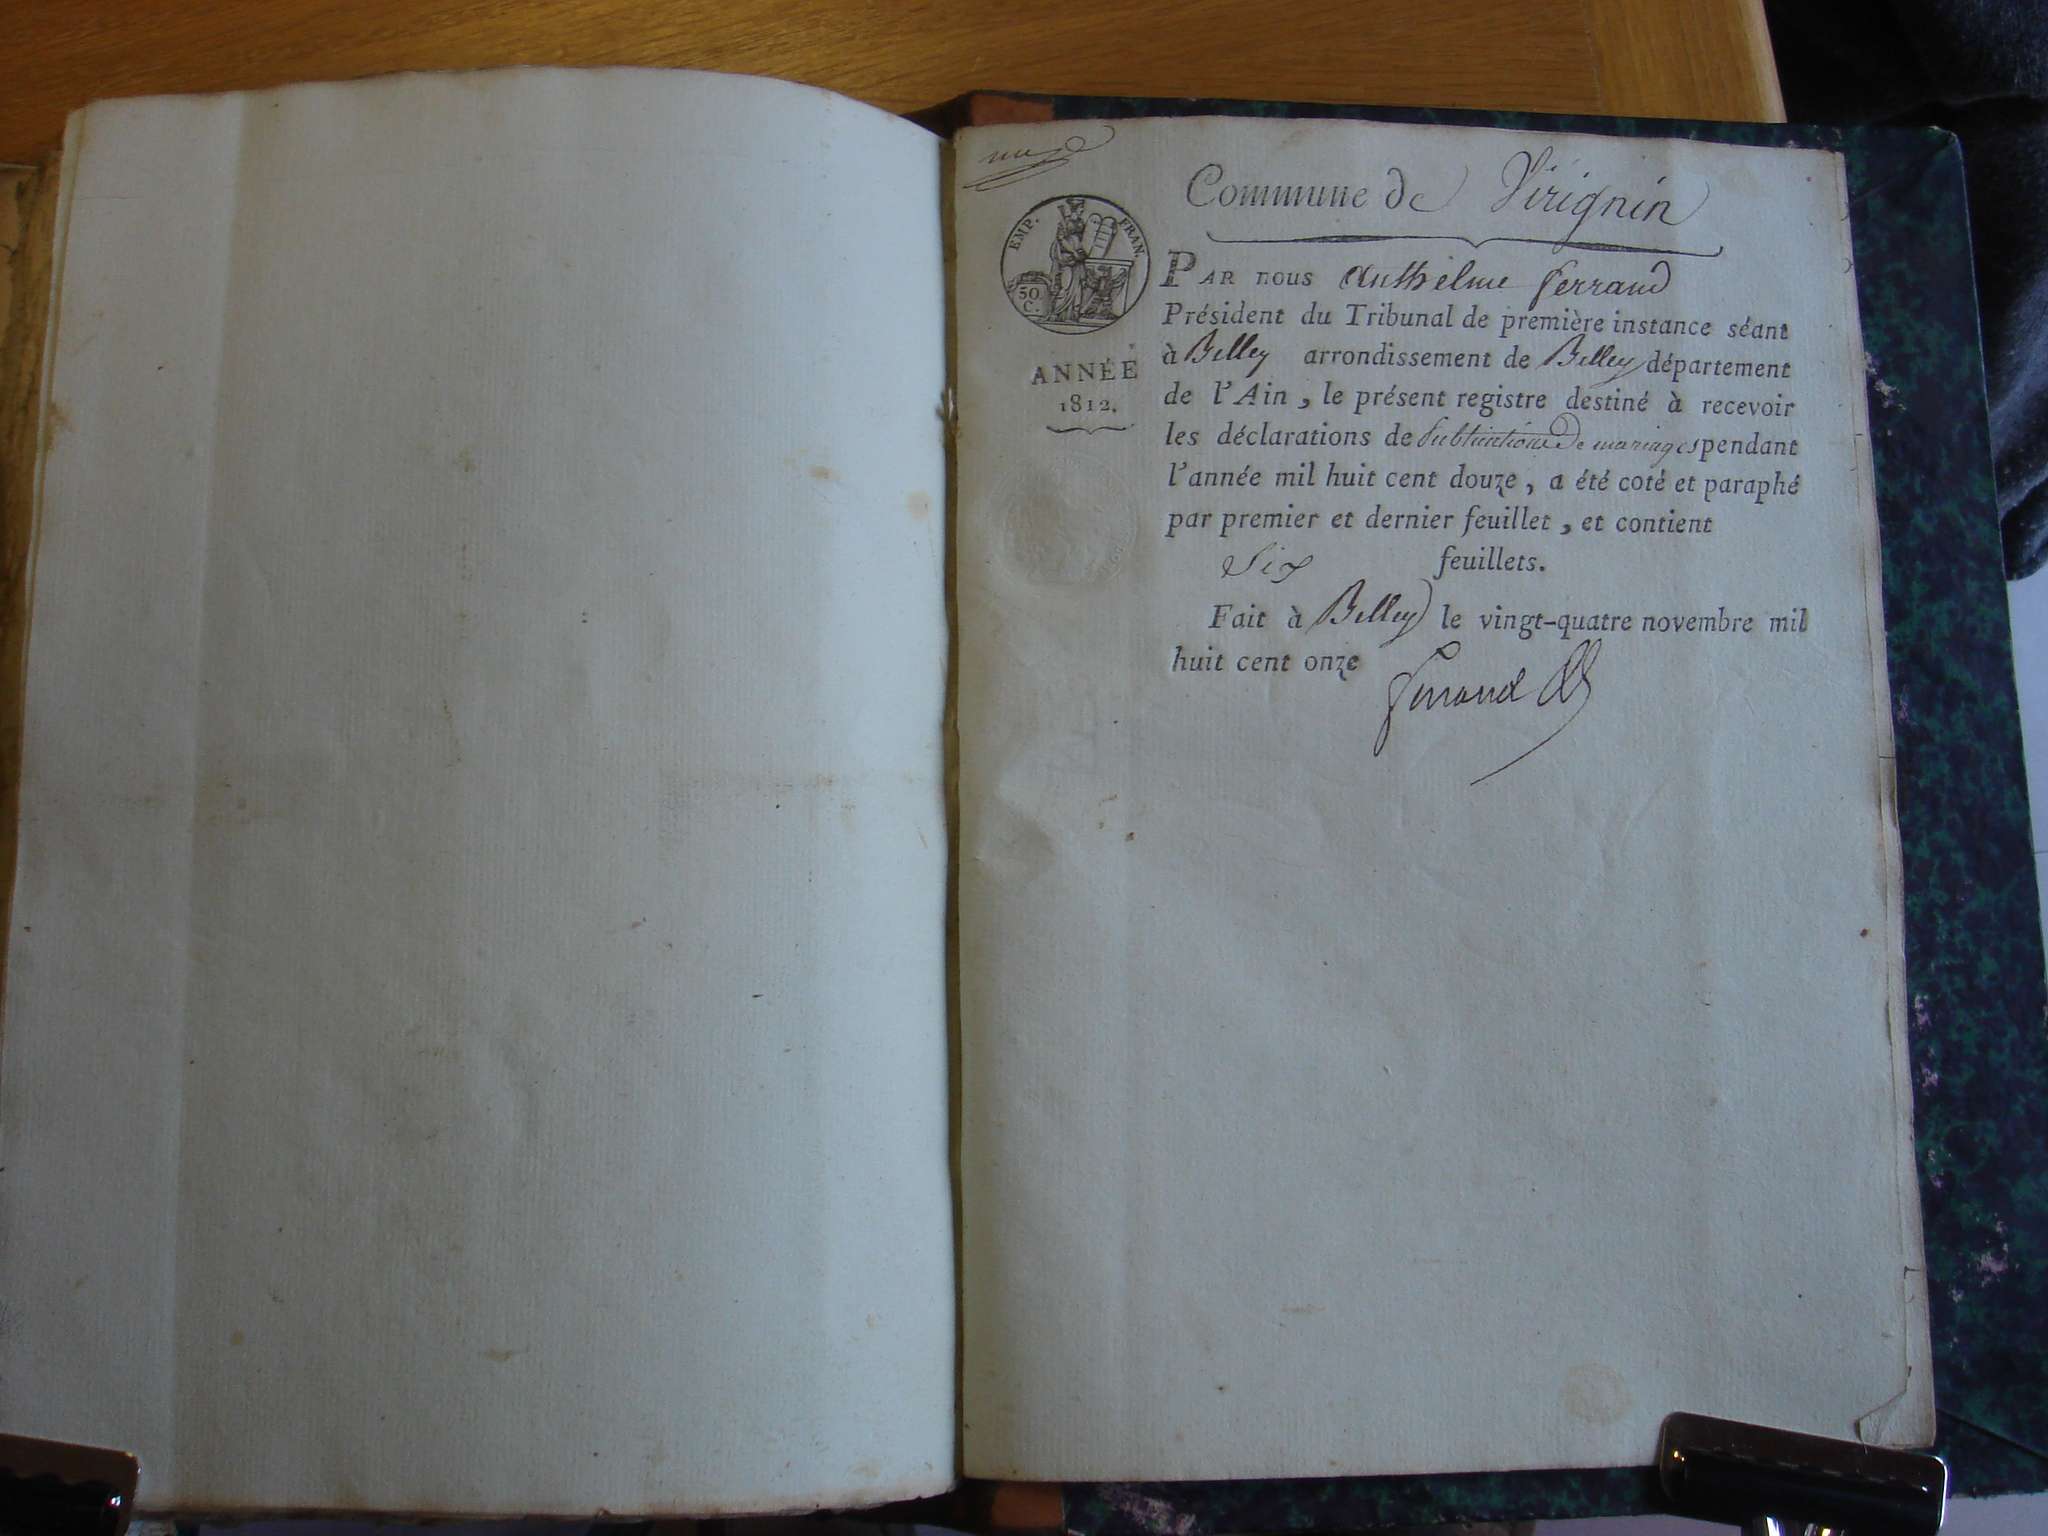 Commune de Virignin
EMP. FRAN.
50
C.
ANNÉE
1812.
PAR nous Anthelme ferrand
Président du Tribunal de première instance séant
à Belley arrondissement de Belley département
de l'Ain, le présent registre destiné à recevoir
les déclarations de publications de mariages pendant
l'année mil huit cent douze, a été coté et paraphé
par premier et dernier feuillet, et contient
Six feuillets.
Fait à Belley le vingt-quatre novembre mil
huit cent onze
ferrand